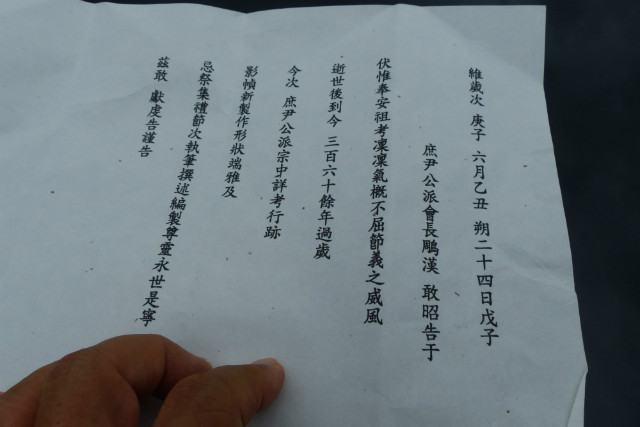 維歲次 庚子 六月乙丑 朔二十四日戊子
庶尹公派會長鵰漢 敢昭告于
伏惟奉安祖考凜凜氣槪不屈節義之威風
逝世後到今 三百六十餘年過歲
今次 庶尹公派宗中詳考行跡
影幀新製作形狀端雅及
忌祭集禮節次執筆撰述編製尊靈永世是寧
茲敢 獻虔告謹告